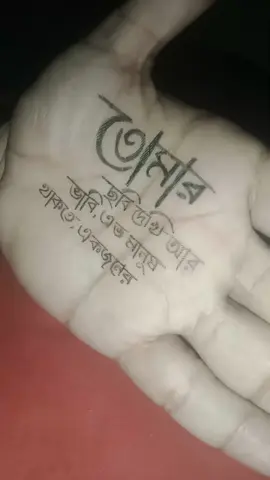 তোমার
ছবি দেখি আর
ভাবি, এত মানুষ
থাকতে, একজনের